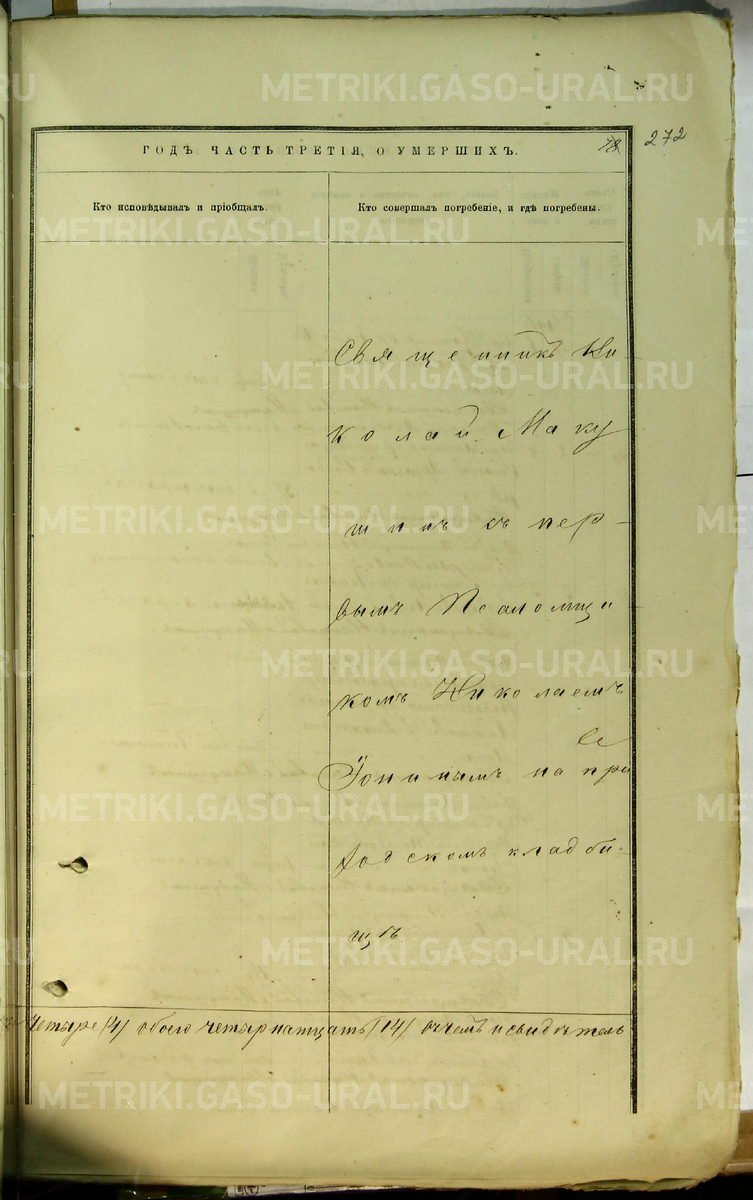 METRIKI.GASO-URAL.RU
ГОДЪ ЧАСТЬ ТРЕТІЯ, О УМЕРШИХЪ.
272
Кто исповѣдывалъ и пріобщалъ.
Кто совершалъ погребеніе, и гдѣ погребены.
Священникъ Ни-
колай Маку
шинъ съ пер-
вымъ Псаломщи
комъ Николаемъ
на при
ходскомъ кладби-
щѣ
Четыре (4) обоего четырнатцать (14) о чемъ и свидѣтель